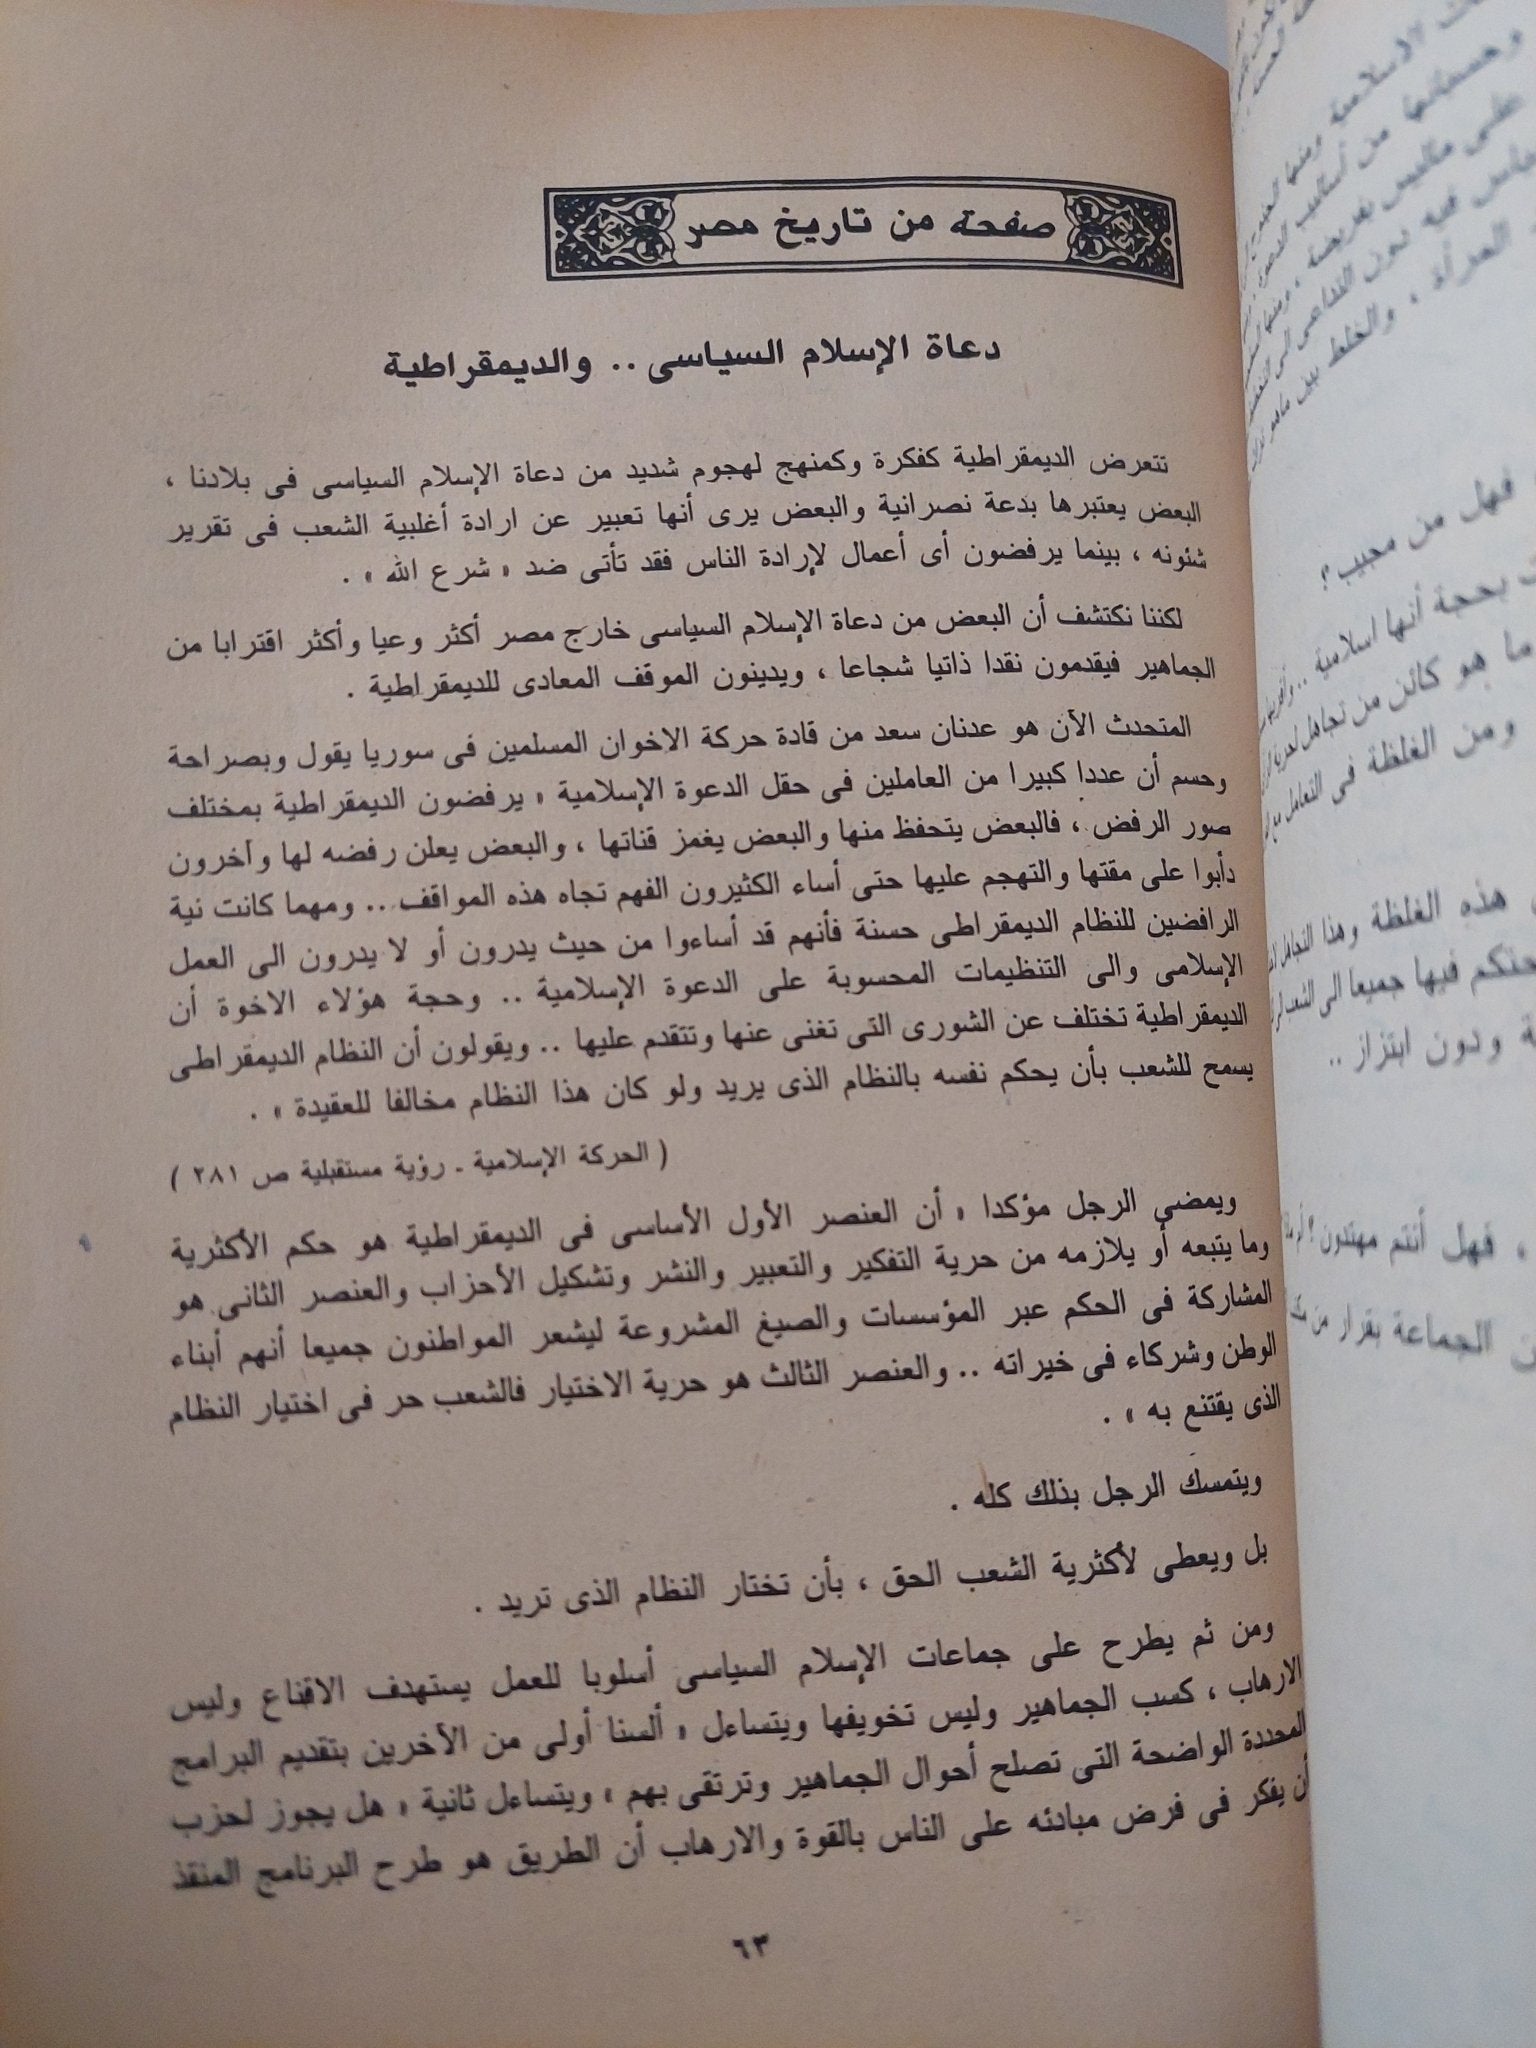 صفحة من تاريخ مصر
دعاة الإسلام السياسى .. والديمقراطية
تتعرض الديمقراطية كفكرة وكمنهج لهجوم شديد من دعاة الإسلام السياسى فى بلادنا ،
البعض يعتبرها بدعة نصرانية والبعض يرى أنها تعبير عن ارادة أغلبية الشعب فى تقرير
شئونه ، بينما يرفضون أى أعمال لإرادة الناس فقد تأتى ضد « شرع الله » .
لكننا نكتشف أن البعض من دعاة الإسلام السياسى خارج مصر أكثر وعيا وأكثر اقترابا من
الجماهير فيقدمون نقدا ذاتيا شجاعا ، ويدينون الموقف المعادى للديمقراطية .
المتحدث الآن هو عدنان سعد من قادة حركة الاخوان المسلمين فى سوريا يقول وبصراحة
وحسم أن عددا كبيرا من العاملين فى حقل الدعوة الإسلامية « يرفضون الديمقراطية بمختلف
صور الرفض ، فالبعض يتحفظ منها والبعض يغمز قناتها ، والبعض يعلن رفضه لها وآخرون
دأبوا على مقتها والتهجم عليها حتى أساء الكثيرون الفهم تجاه هذه المواقف .. ومهما كانت نية
الرافضين للنظام الديمقراطى حسنة فأنهم قد أساءوا من حيث يدرون أو لا يدرون الى العمل
الإسلامى والى التنظيمات المحسوبة على الدعوة الإسلامية .. وحجة هؤلاء الاخوة أن
الديمقراطية تختلف عن الشورى التى تغنى عنها وتتقدم عليها .. ويقولون أن النظام الديمقراطى
يسمح للشعب بأن يحكم نفسه بالنظام الذى يريد ولو كان هذا النظام مخالفا للعقيدة » .
( الحركة الإسلامية ـ رؤية مستقبلية ص ٢٨١ )
ويمضى الرجل مؤكدا « أن العنصر الأول الأساسى فى الديمقراطية هو حكم الأكثرية
وما يتبعه أو يلازمه من حرية التفكير والتعبير والنشر وتشكيل الأحزاب والعنصر الثانى هو
المشاركة فى الحكم عبر المؤسسات والصيغ المشروعة ليشعر المواطنون جميعا أنهم أبناء
الوطن وشركاء فى خيراته .. والعنصر الثالث هو حرية الاختيار فالشعب حر فى اختيار النظام
الذى يقتنع به » .
ويتمسك الرجل بذلك كله .
بل ويعطى لأكثرية الشعب الحق ، بأن تختار النظام الذى تريد .
ومن ثم يطرح على جماعات الإسلام السياسى أسلوبا للعمل يستهدف الاقناع وليس
الارهاب ، كسب الجماهير وليس تخويفها ويتساءل « ألسنا أولى من الآخرين بتقديم البرامج
المحددة الواضحة التى تصلح أحوال الجماهير وترتقى بهم » ويتساءل ثانية « هل يجوز لحزب
أن يفكر فى فرض مبادئه على الناس بالقوة والارهاب أن الطريق هو طرح البرنامج المنقذ
٦٣
فهل من مجيب ؟
بحجة أنها اسلامية ..
ما هو كائن من تجاهل
ومن الغلظة فى التعامل مع
هذه الغلظة وهذا التجاهل
فيها جميعا الى الشعب
ودون ابتزاز ..
، فهل أنتم مهتدون ؟
الجماعة بقرار من